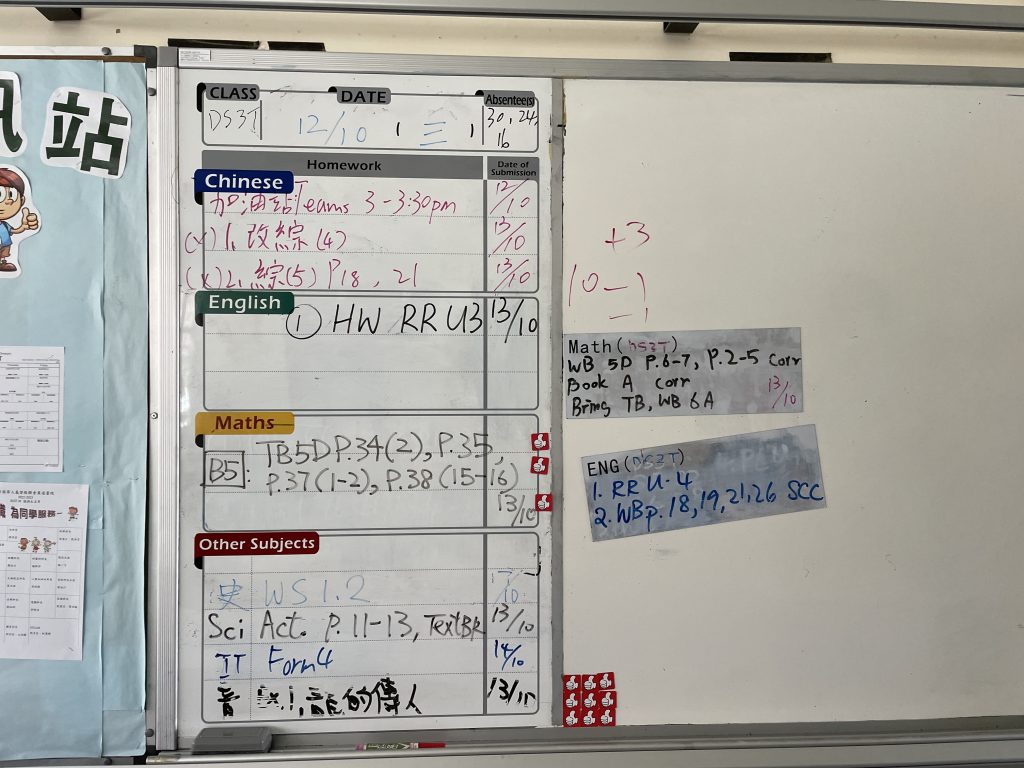 訊
站
為同學服務
CLASS DATE Absentee(s)
DS3T 12/10 , 三 , 30, 24, 16
Homework Date of Submission
Chinese
加油站 Teams 3-3:30pm 12/10
(x) 1. 改綜 (4) 13/10
(x) 2. 綜(5) P18, 21 13/10
English
① HW RR U3 13/10
Maths
B5: TB5D P.34(2), P.35,
P.37(1-2), P.38(15-16)
13/10
Other Subjects
史 WS 1.2 /10
Sci Act. P.11-13, TextBk 13/10
IT Form4 14/10
音 1, 龍的傳人 13/10
+3
10 -1
-1
Math (DS3T)
WB 5D P.6-7, P.2-5 corr
Book A corr 13/10
Bring TB, WB 6A
ENG (DS3T)
1. RR U-4
2. WB p. 18, 19, 21, 26 SCC